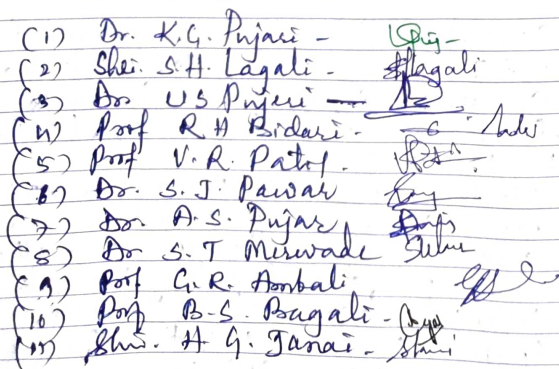 (1) Dr. K.G. Pujari -
(2) Shri. S.H. Lagali - SHlagali
(3) Dr US Pujeri -
(4) Prof R H Bidari -
(5) Prof V. R. Patil.
(6) Dr. S. J. Pawar
(7) Dr. A. S. Pujar
(8) Dr S. T Merwade
(9) Prof G. R. Ambali
(10) Prof B-S. Bagali -
(11) Shri. H G. Tanai -